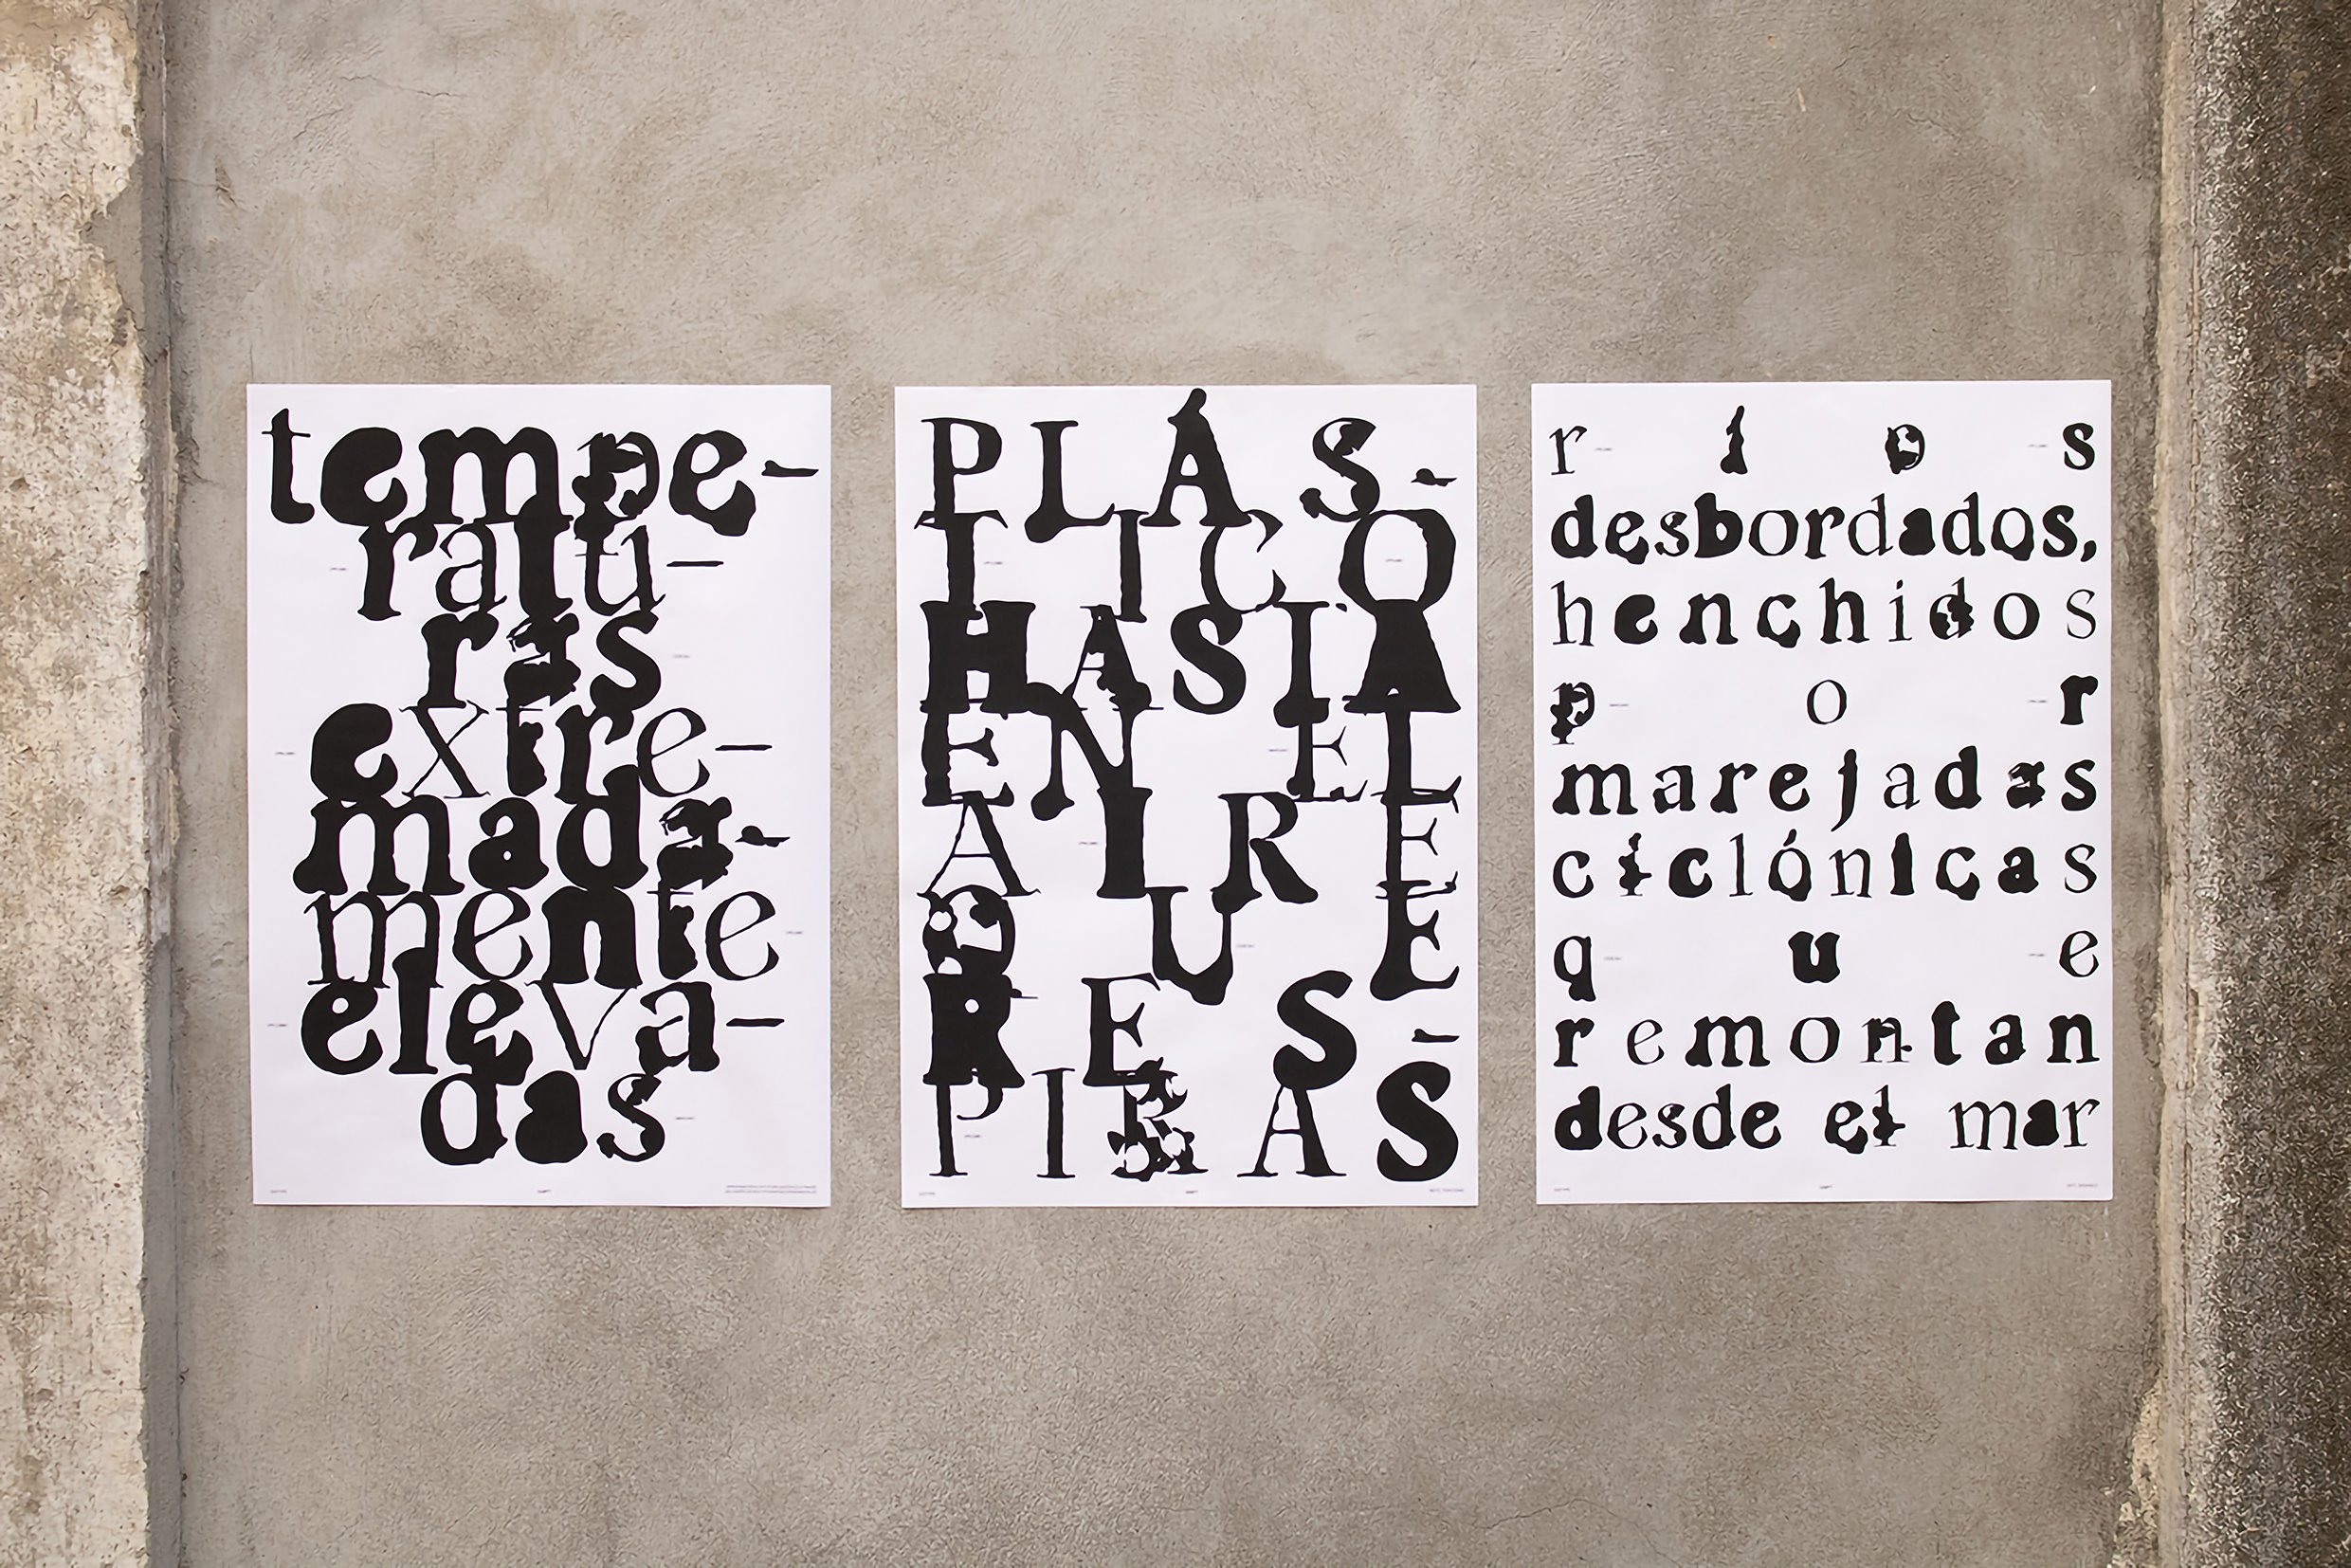 tempe-
ratu-
ras
extre-
mada-
mente
eleva-
das
PLÁS-
TICO
HASTA
EN EL
AIRE
QUE
RES-
PIRAS
ríos
desbordados,
henchidos
por
marejadas
ciclónicas
que
remontan
desde el mar